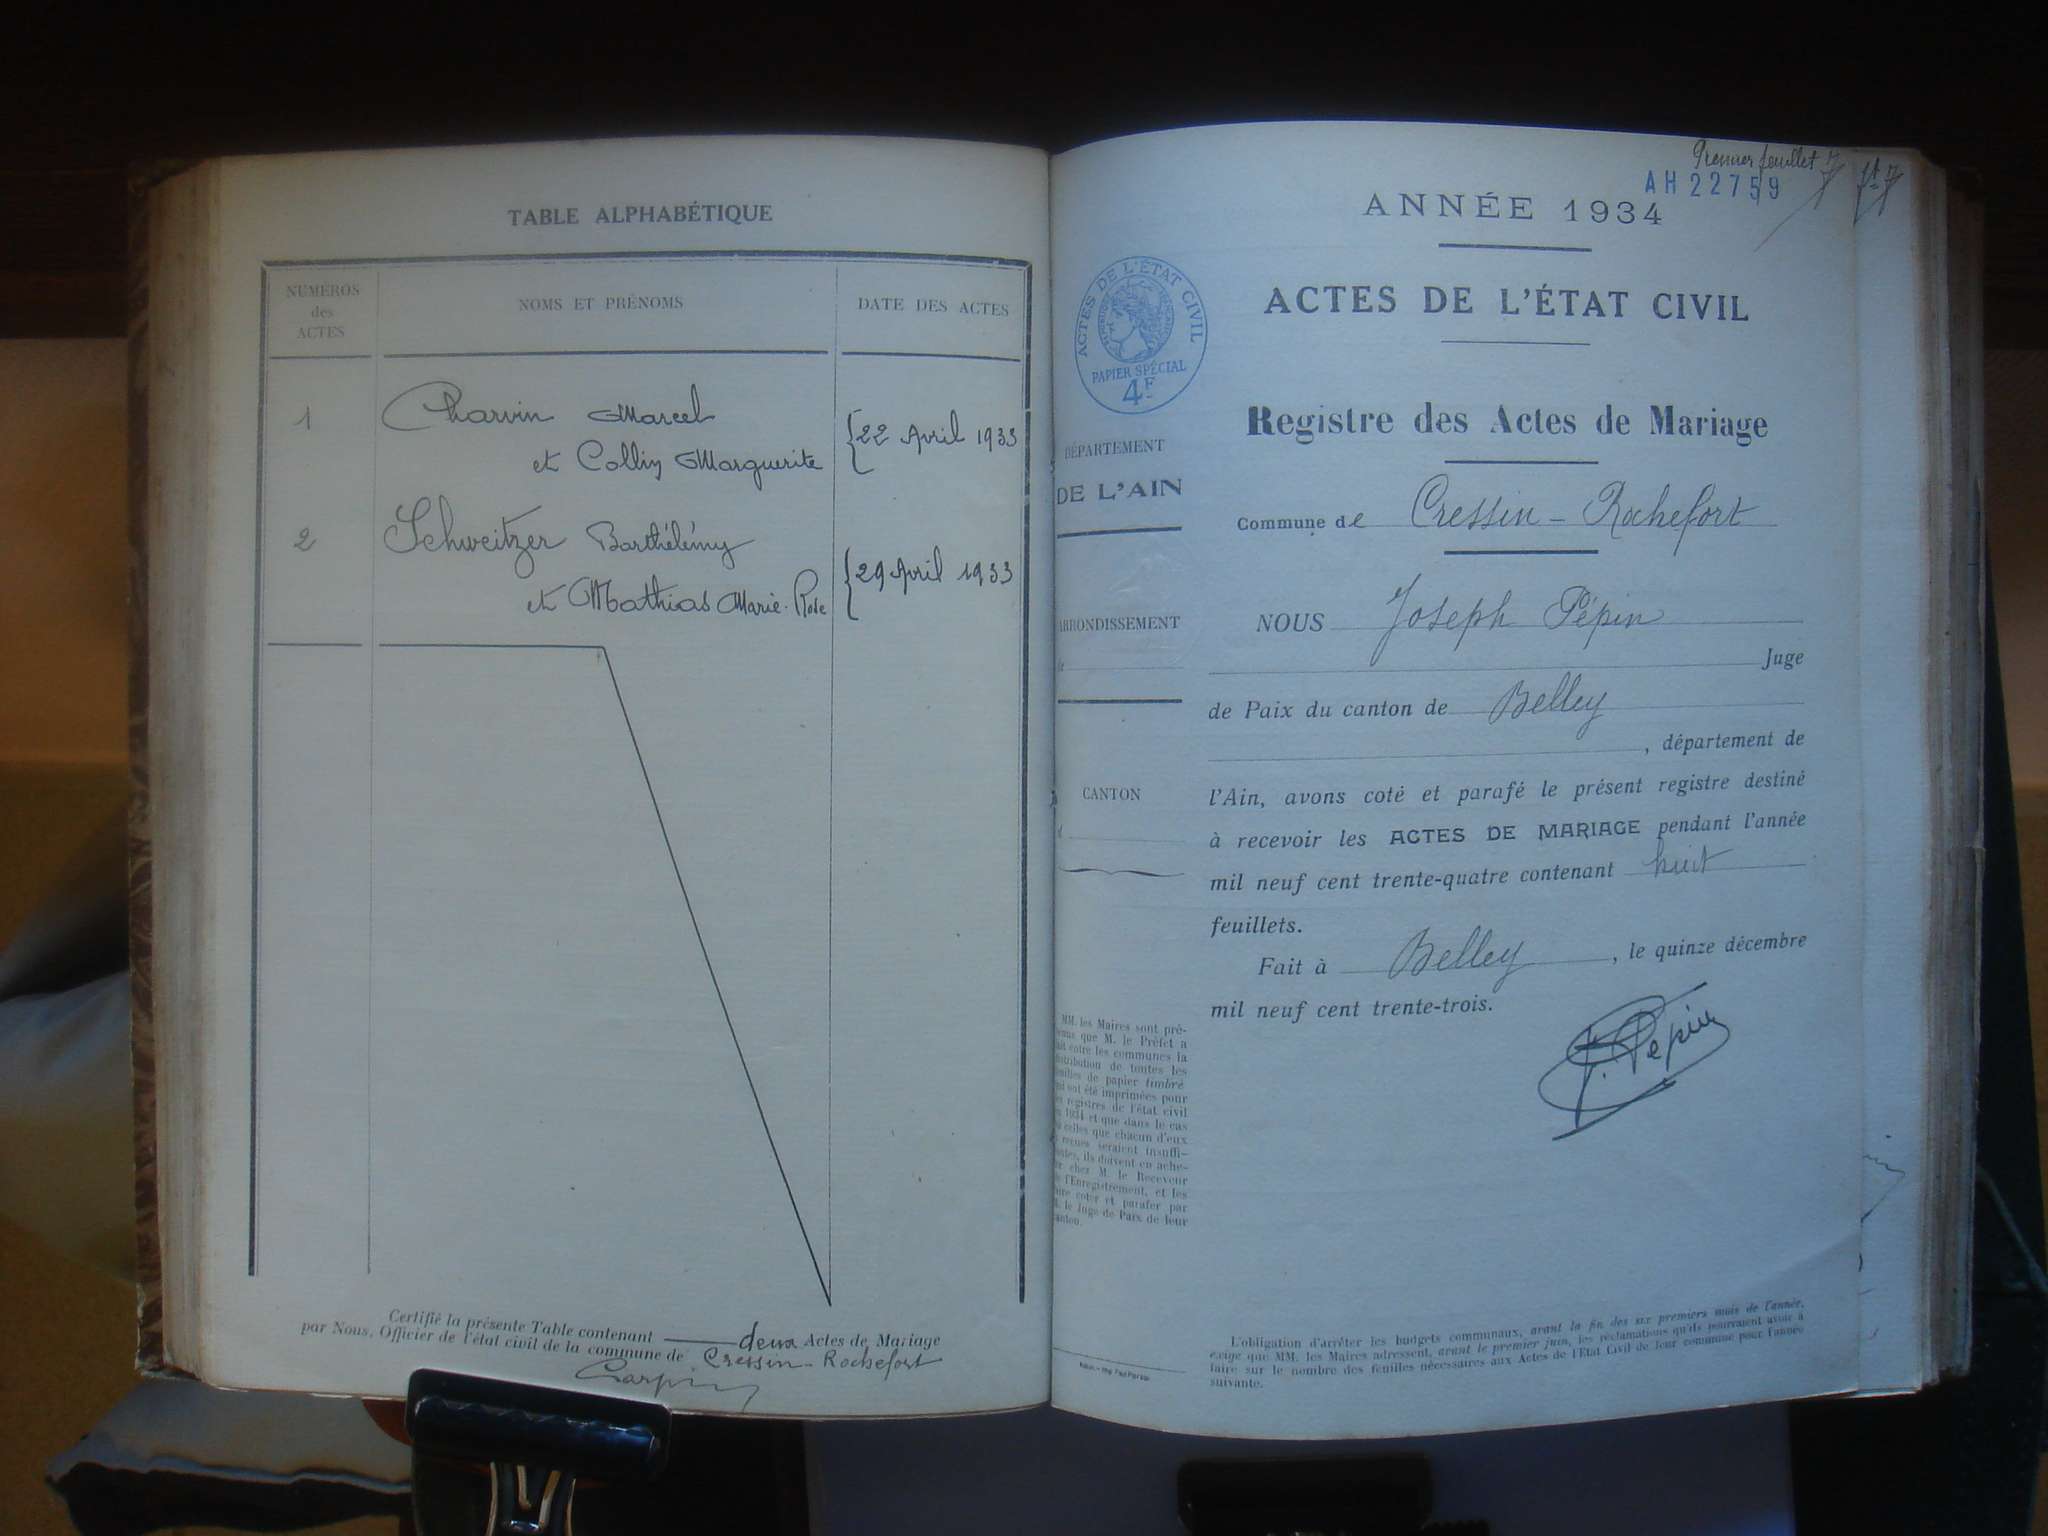 TABLE ALPHABÉTIQUE
NUMEROS
des
ACTES
NOMS ET PRÉNOMS
DATE DES ACTES
1
Charvin Marcel
et Colliy Marguerite
22 Avril 1933
2
Schweitzer Barthélémy
et Mathias Marie-Rose
29 Avril 1933
Certifié la présente Table contenant deux Actes de Mariage
par Nous, Officier de l'état civil de la commune de Cressin-Rochefort
Premier feuillet
AH 22759
ANNÉE 1934
ACTES DE L'ÉTAT CIVIL
PAPIER SPÉCIAL
4F
ACTES DE L'ÉTAT CIVIL
Registre des Actes de Mariage
DÉPARTEMENT
DE L'AIN
Commune de Cressin-Rochefort
ARRONDISSEMENT
NOUS Joseph Pépin
Juge
de Paix du canton de Belley
, département de
CANTON
l'Ain, avons coté et parafé le présent registre destiné
à recevoir les ACTES DE MARIAGE pendant l'année
mil neuf cent trente-quatre contenant huit
feuillets.
Fait à Belley, le quinze décembre
mil neuf cent trente-trois.
J. Pépin
MM. les Maires sont pré-
que M. le Préfet a
entre les communes la
de toutes les
de papier timbré
ont été imprimées pour
registres de l'état civil
1934 et que dans le cas
celles que chacun d'eux
seraient insuffi-
ils doivent en ache-
chez M. le Receveur
l'Enregistrement, et les
coter et parafer par
le Juge de Paix de leur
canton.
L'obligation d'arrêter les budgets communaux, avant la fin des six premiers mois de l'année,
exige que MM. les Maires adressent, avant le premier juin, les réclamations qu'ils pourraient avoir à
faire sur le nombre des feuilles nécessaires aux Actes de l'État Civil de leur commune pour l'année
suivante.